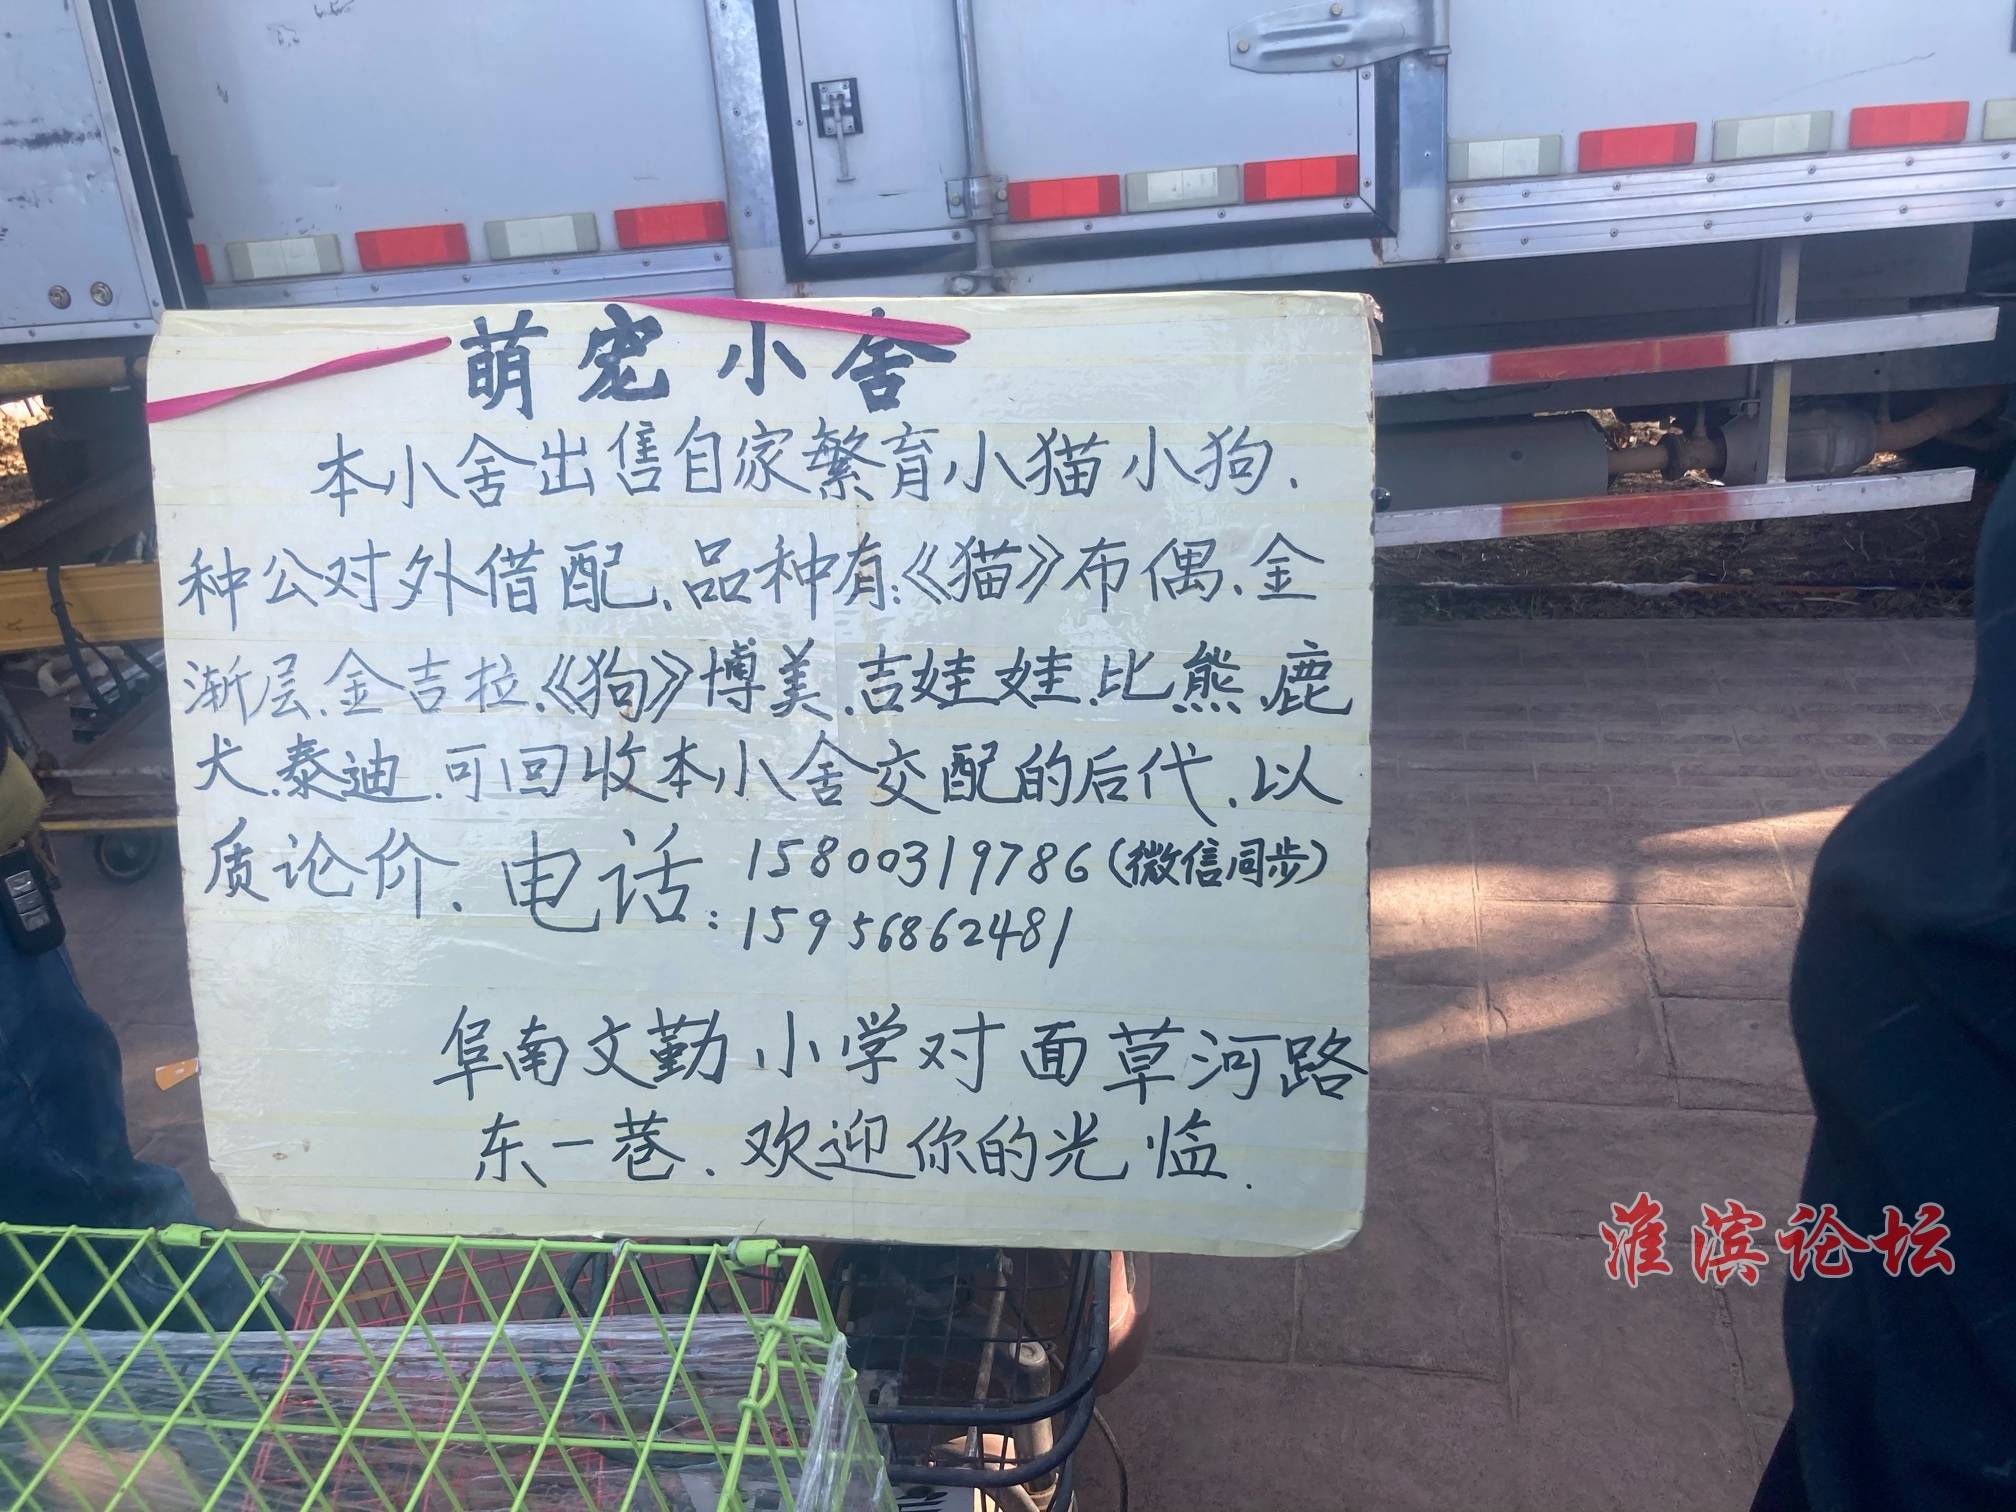 萌宠小舍
本小舍出售自家繁育小猫小狗.
种公对外借配、品种有:《猫》布偶、金
渐层、金吉拉、《狗》博美、吉娃娃、比熊、鹿
犬、泰迪、可回收本小舍交配的后代、以
质论价、电话:15800319786(微信同步)
15956862481
阜南文勤小学对面草河路
东一巷、欢迎你的光临.
淮滨论坛